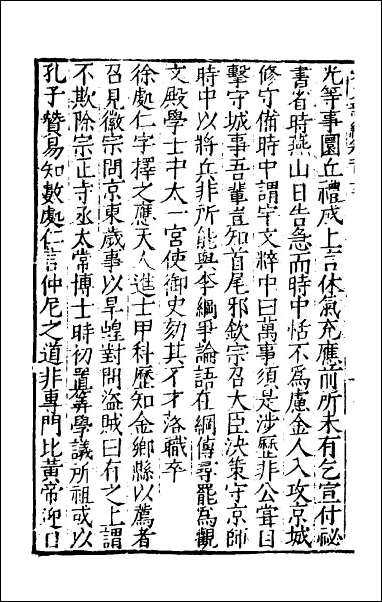 光等事圜丘禮成上言休氣充應前所未有乞宣付祕
書省時燕山日告急而時中恬不為慮金人入攻京城
修守備時中謂宇文粹中曰萬事須是涉歷非公嘗目
擊守城事吾輩豈知首尾邪欽宗召大臣決策守京師
時中以將兵非所能與李綱爭論語在綱傳尋罷為觀
文殿學士中太一宮使御史劾其不才落職卒
徐處仁字擇之應天人進士甲科歷知金鄉縣以薦者
召見徽宗問京東歲事以旱蝗對問盜賊曰有之上謂
不欺除宗正寺丞太常博士時初置算學議所祖或以
孔子贊易知數處仁言仲尼之道非專門比黃帝迎日